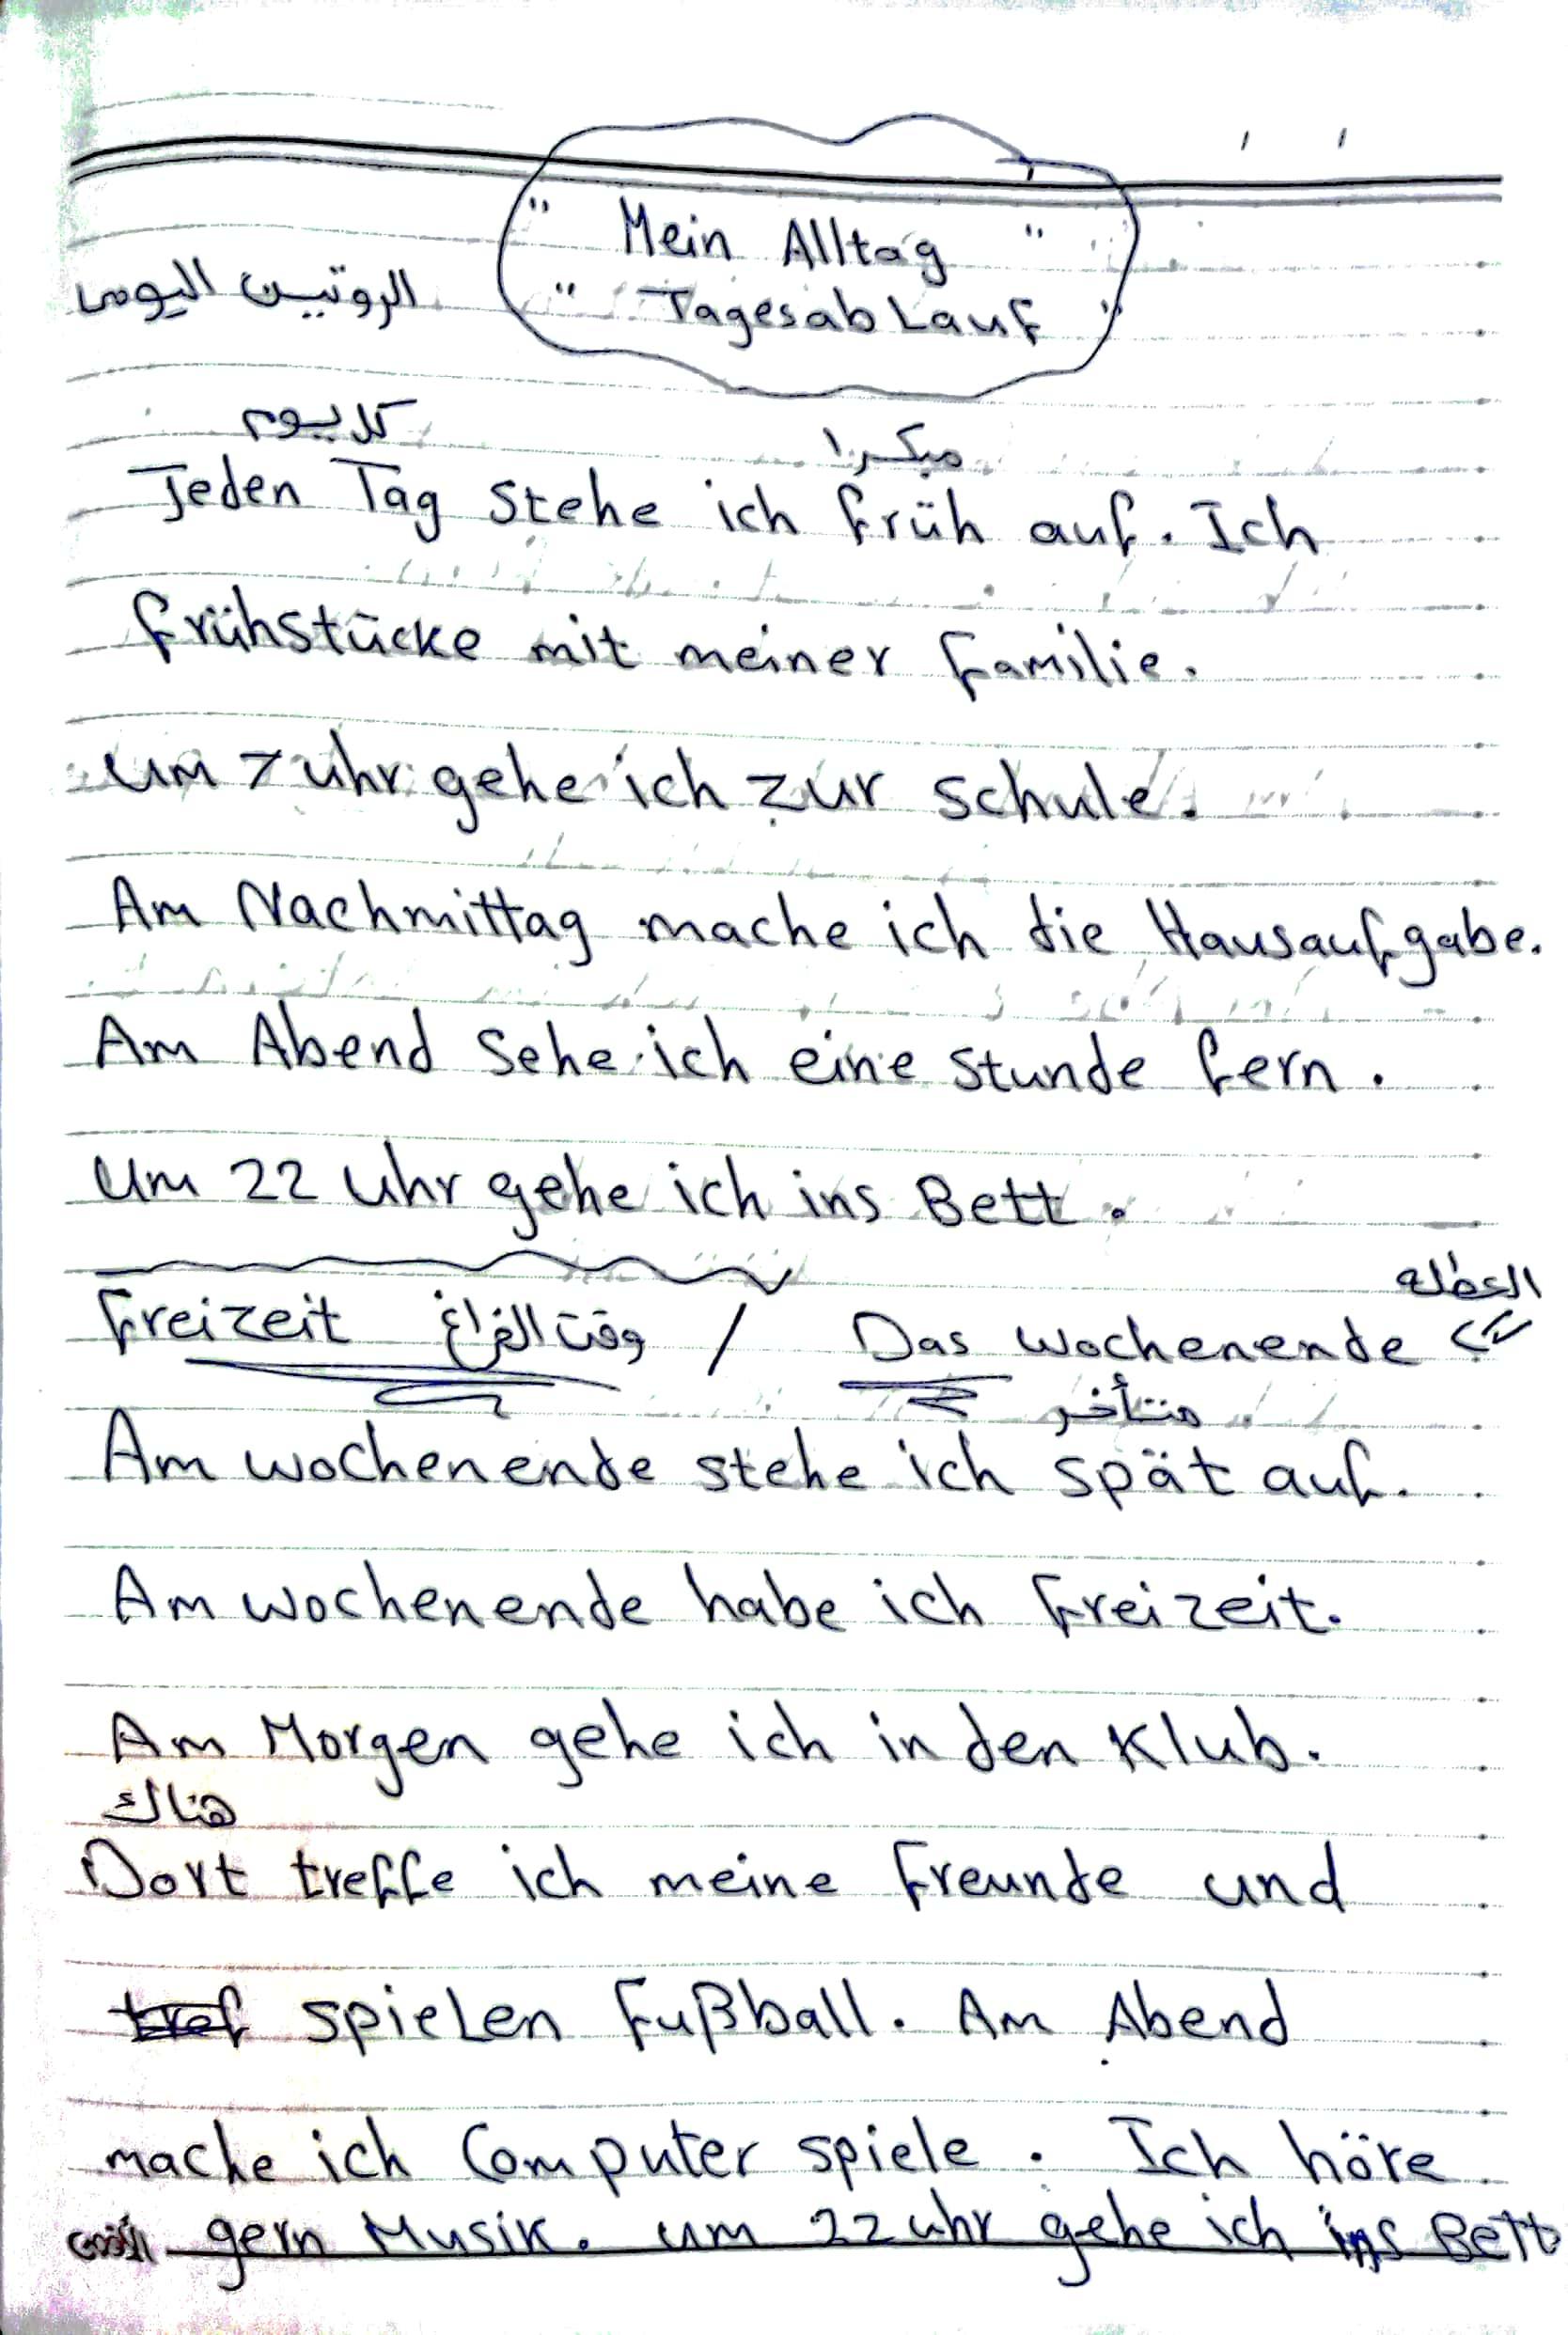 " Mein Alltag "
الروتين اليومى " Tagesablauf "
كل يوم مبكرا
Jeden Tag stehe ich früh auf. Ich
frühstücke mit meiner Familie.
um 7 uhr gehe ich zur schule.
Am Nachmittag mache ich die Hausaufgabe.
Am Abend sehe ich eine stunde fern.
Um 22 uhr gehe ich ins Bett.
العطله
Freizeit وقت الفراغ / Das wochenende
متأخر
Am wochenende stehe ich spät auf.
Am wochenende habe ich Freizeit.
Am Morgen gehe ich in den Klub.
هناك
Dort treffe ich meine Freunde und
tref spielen Fußball. Am Abend
mache ich Computer spiele. Ich höre
gern Musik. um 22 uhr gehe ich ins Bett